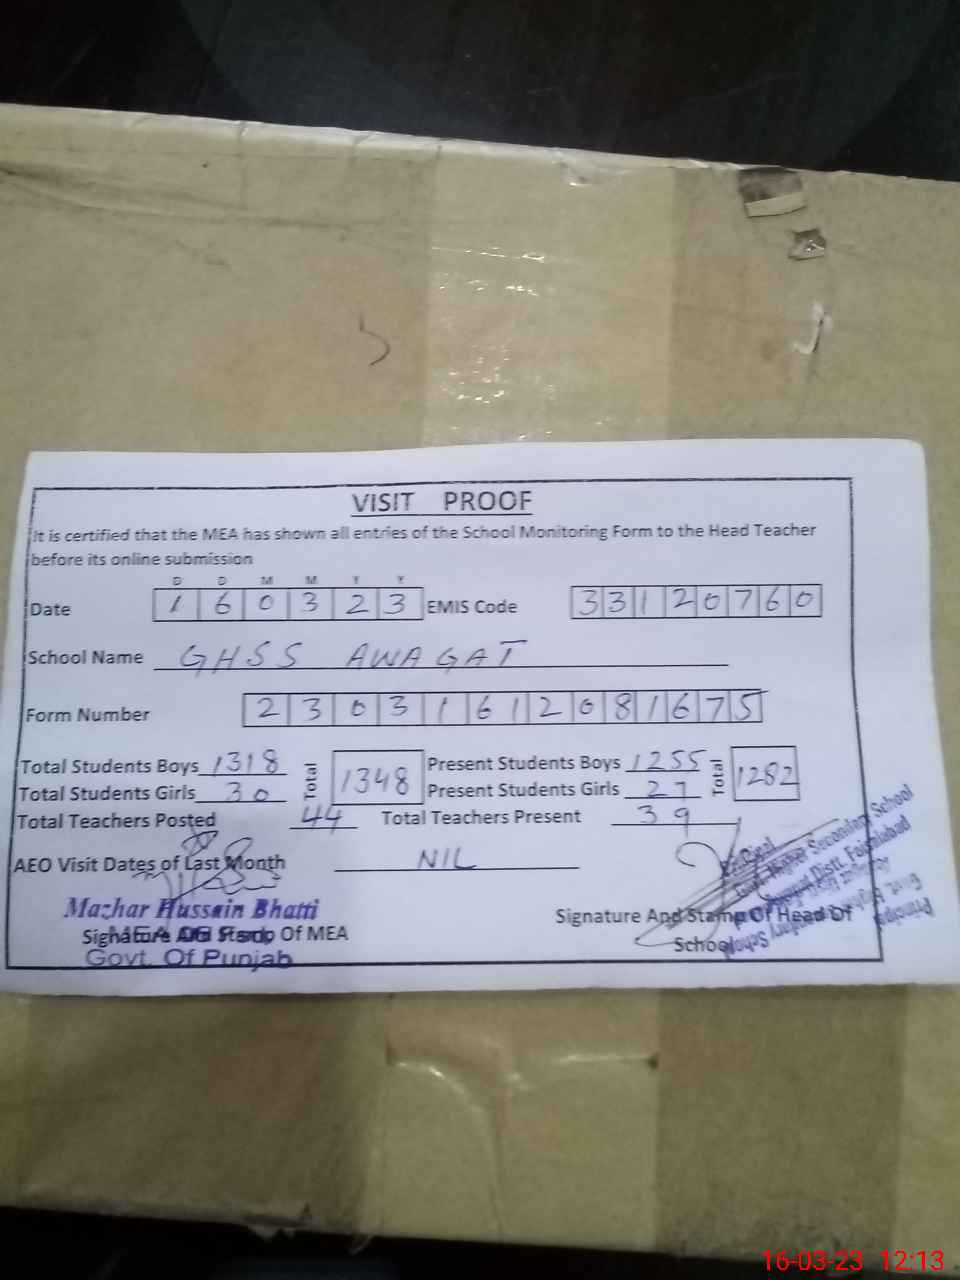 VISIT PROOF
It is certified that the MEA has shown all entries of the School Monitoring Form to the Head Teacher
before its online submission
D D M M Y Y
Date 1 6 0 3 2 3 EMIS Code 3 3 1 2 0 7 6 0
School Name GHSS AWAGAT
Form Number 2 3 0 3 1 6 1 2 0 8 1 6 7 5
Total Students Boys 1318 Total 1348 Present Students Boys 1255 Total 1282
Total Students Girls 30 Present Students Girls 27
Total Teachers Posted 44 Total Teachers Present 39
AEO Visit Dates of Last Month NIL
Mazhar Hussain Bhatti
Signature And Stamp Of MEA
Govt. Of Punjab
Signature And Stamp Of Head Of
School
Principal
Govt. Higher Secondary School
Distt. Faisalabad
16-03-23 12:13